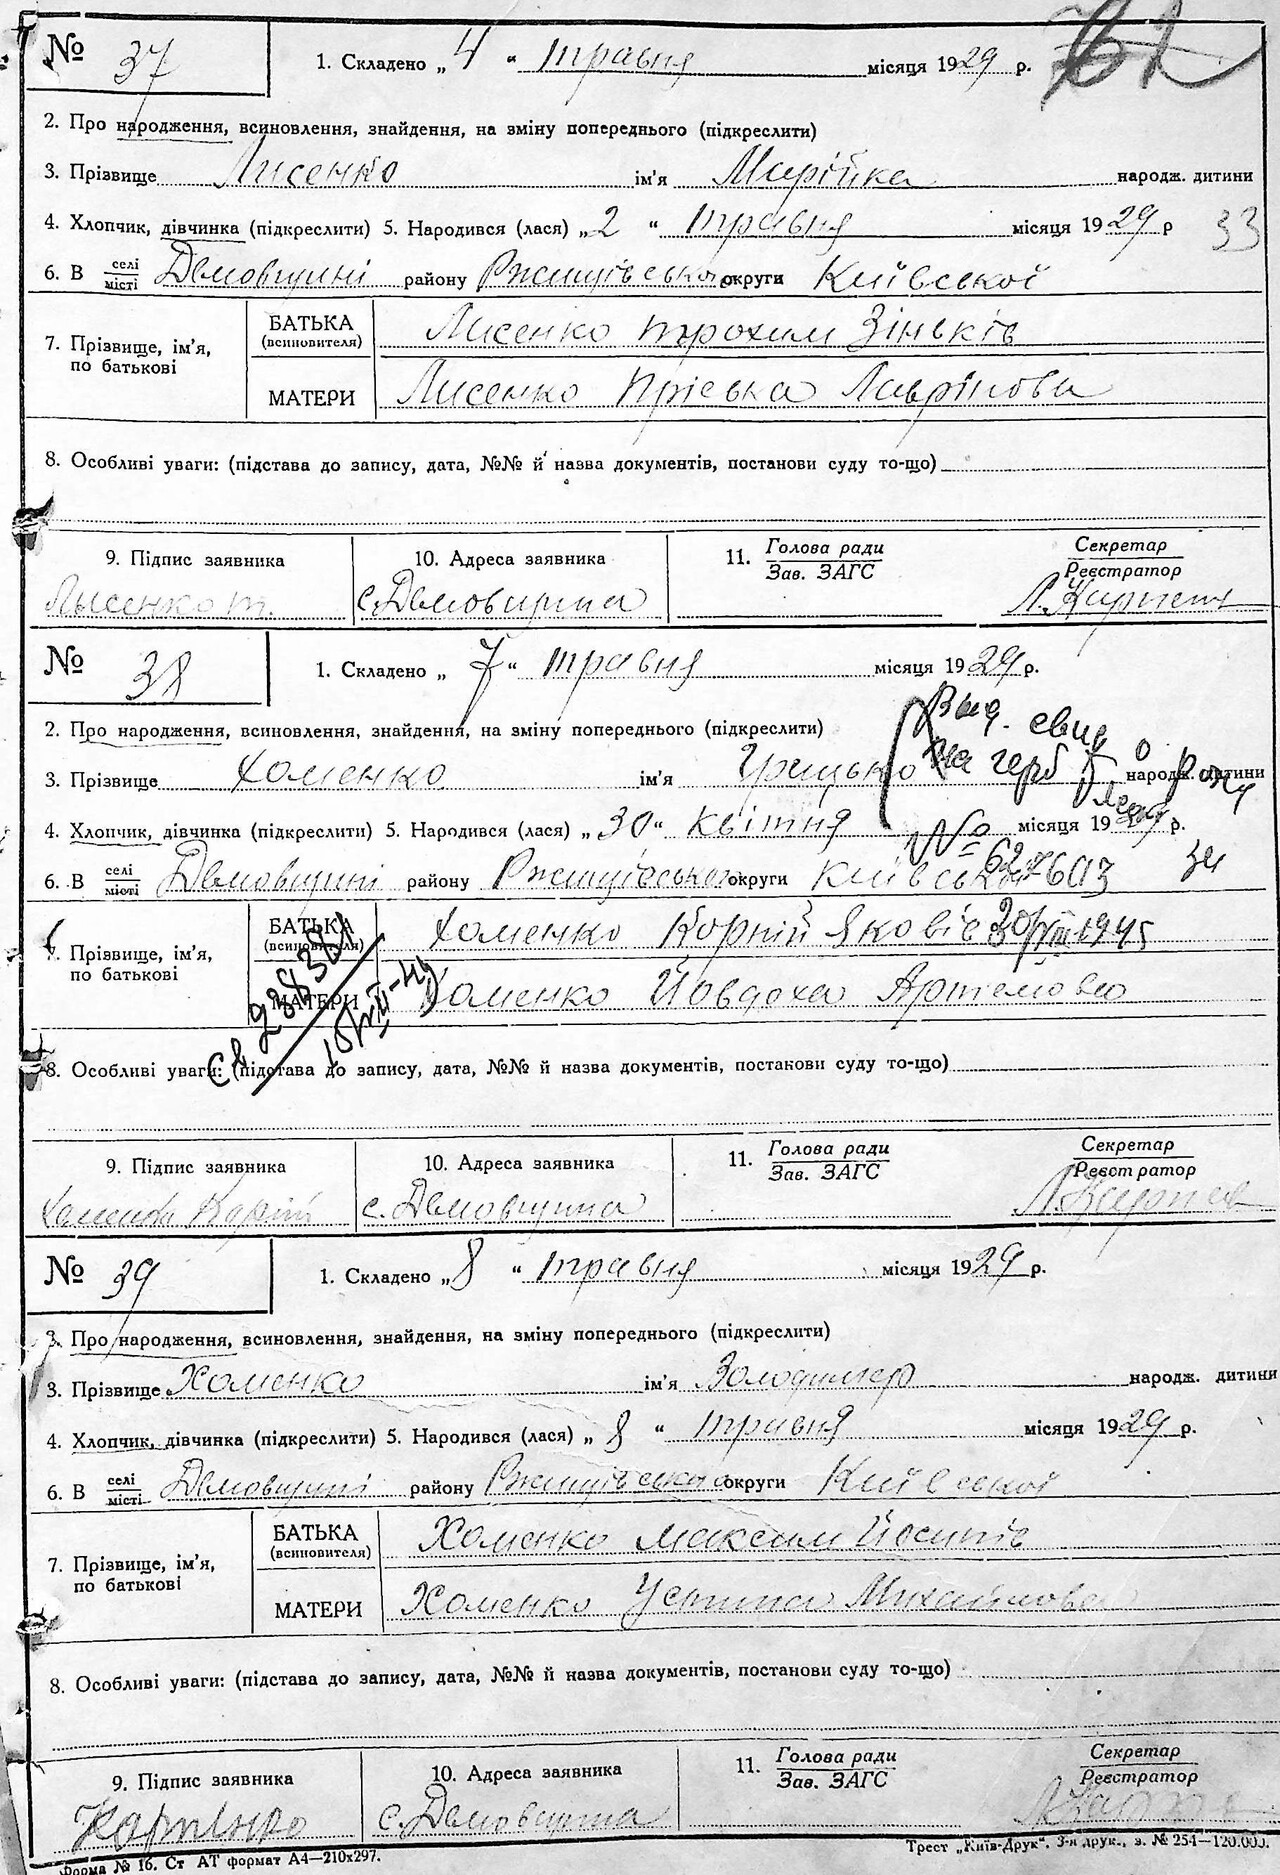 № 37 1. Складено „ 4 “ травня місяця 1929 р.
2. Про народження, всиновлення, знайдення, на зміну попереднього (підкреслити)
3. Прізвище Лисенко ім'я Марійка народж. дитини
4. Хлопчик, дівчинка (підкреслити) 5. Народився (лася) „ 2 “ травня місяця 1929 р 33
6. В селі місті Демовщині району Ржищівського округи Київської
7. Прізвище, ім'я, по батькові
БАТЬКА (всиновителя) Лисенко Трохим Зіньків
МАТЕРИ Лисенко Пріська Лаврінова
8. Особливі уваги: (підстава до запису, дата, №№ й назва документів, постанови суду то-що)
9. Підпис заявника 10. Адреса заявника 11. Голова ради Зав. ЗАГС Секретар Реєстратор
Лысенко т. с. Демовщина
№ 38 1. Складено „ 7 “ травня місяця 1929 р.
2. Про народження, всиновлення, знайдення, на зміну попереднього (підкреслити)
Выд. свид о рожд
на герб
3. Прізвище Хоменко ім'я Грицько народж. дитини
4. Хлопчик, дівчинка (підкреслити) 5. Народився (лася) „ 30 “ квітня місяця 1929 р.
№
6. В селі місті Демовщині району Ржищівського округи Київської 34
7. Прізвище, ім'я, по батькові
БАТЬКА (всиновителя) Хоменко Корній Яковів 20/VIII 1945
МАТЕРИ Хоменко Йовдоха Артемова
8. Особливі уваги: (підстава до запису, дата, №№ й назва документів, постакови суду то-що)
9. Підпис заявника 10. Адреса заявника 11. Голова ради Зав. ЗАГС Секретар Реєстратор
Хоменко Корній с. Демовщина
№ 39 1. Складено „ 8 “ травня місяця 1929 р.
2. Про народження, всиновлення, знайдення, на зміну попереднього (підкреслити)
3. Прізвище Хоменко ім'я Володимер народж. дитини
4. Хлопчик, дівчинка (підкреслити) 5. Народився (лася) „ 8 “ травня місяця 1929 р.
6. В селі місті Демовщині району Ржищівського округи Київської
7. Прізвище, ім'я, по батькові
БАТЬКА (всиновителя) Хоменко Максим Йосипів
МАТЕРИ Хоменко Устина Михайлова
8. Особливі уваги: (підстава до запису, дата, №№ й назва документів, постанови суду то-що)
9. Підпис заявника 10. Адреса заявника 11. Голова ради Зав. ЗАГС Секретар Реєстратор
с. Демовщина
Форма № 16. Ст АТ формат А4—210х297. Трест „Київ-Друк“. 3-я друк., з. № 254—120.000.